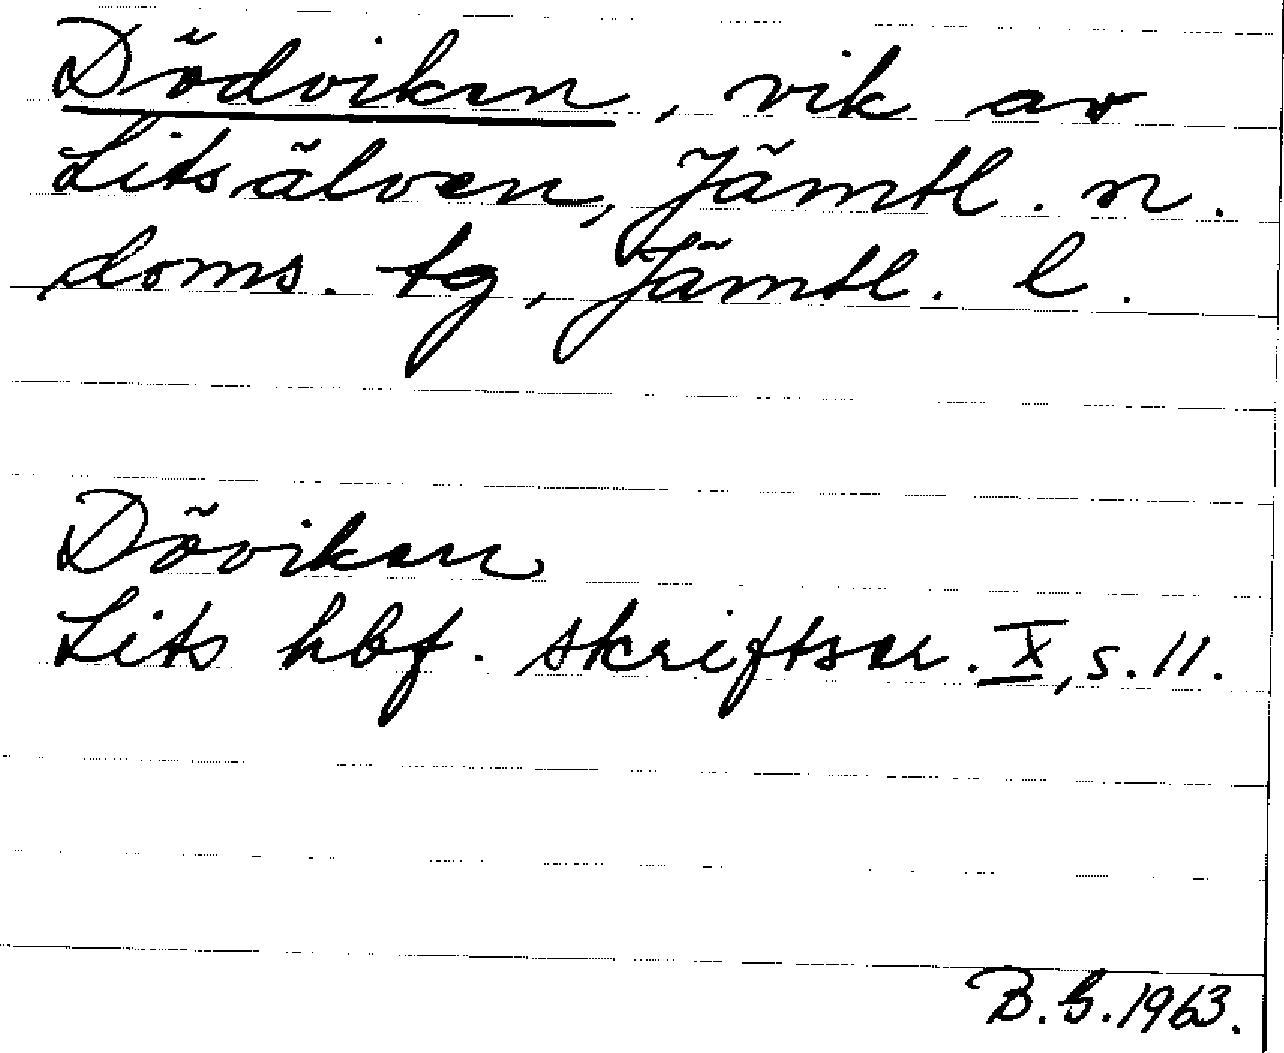 Dödviken, vik av
Litsälven, Jämtl. n.
doms. tg, Jämtl. l.
Döviken
Lits hbf. skriftser. X, s. 11.
B. G. 1963.